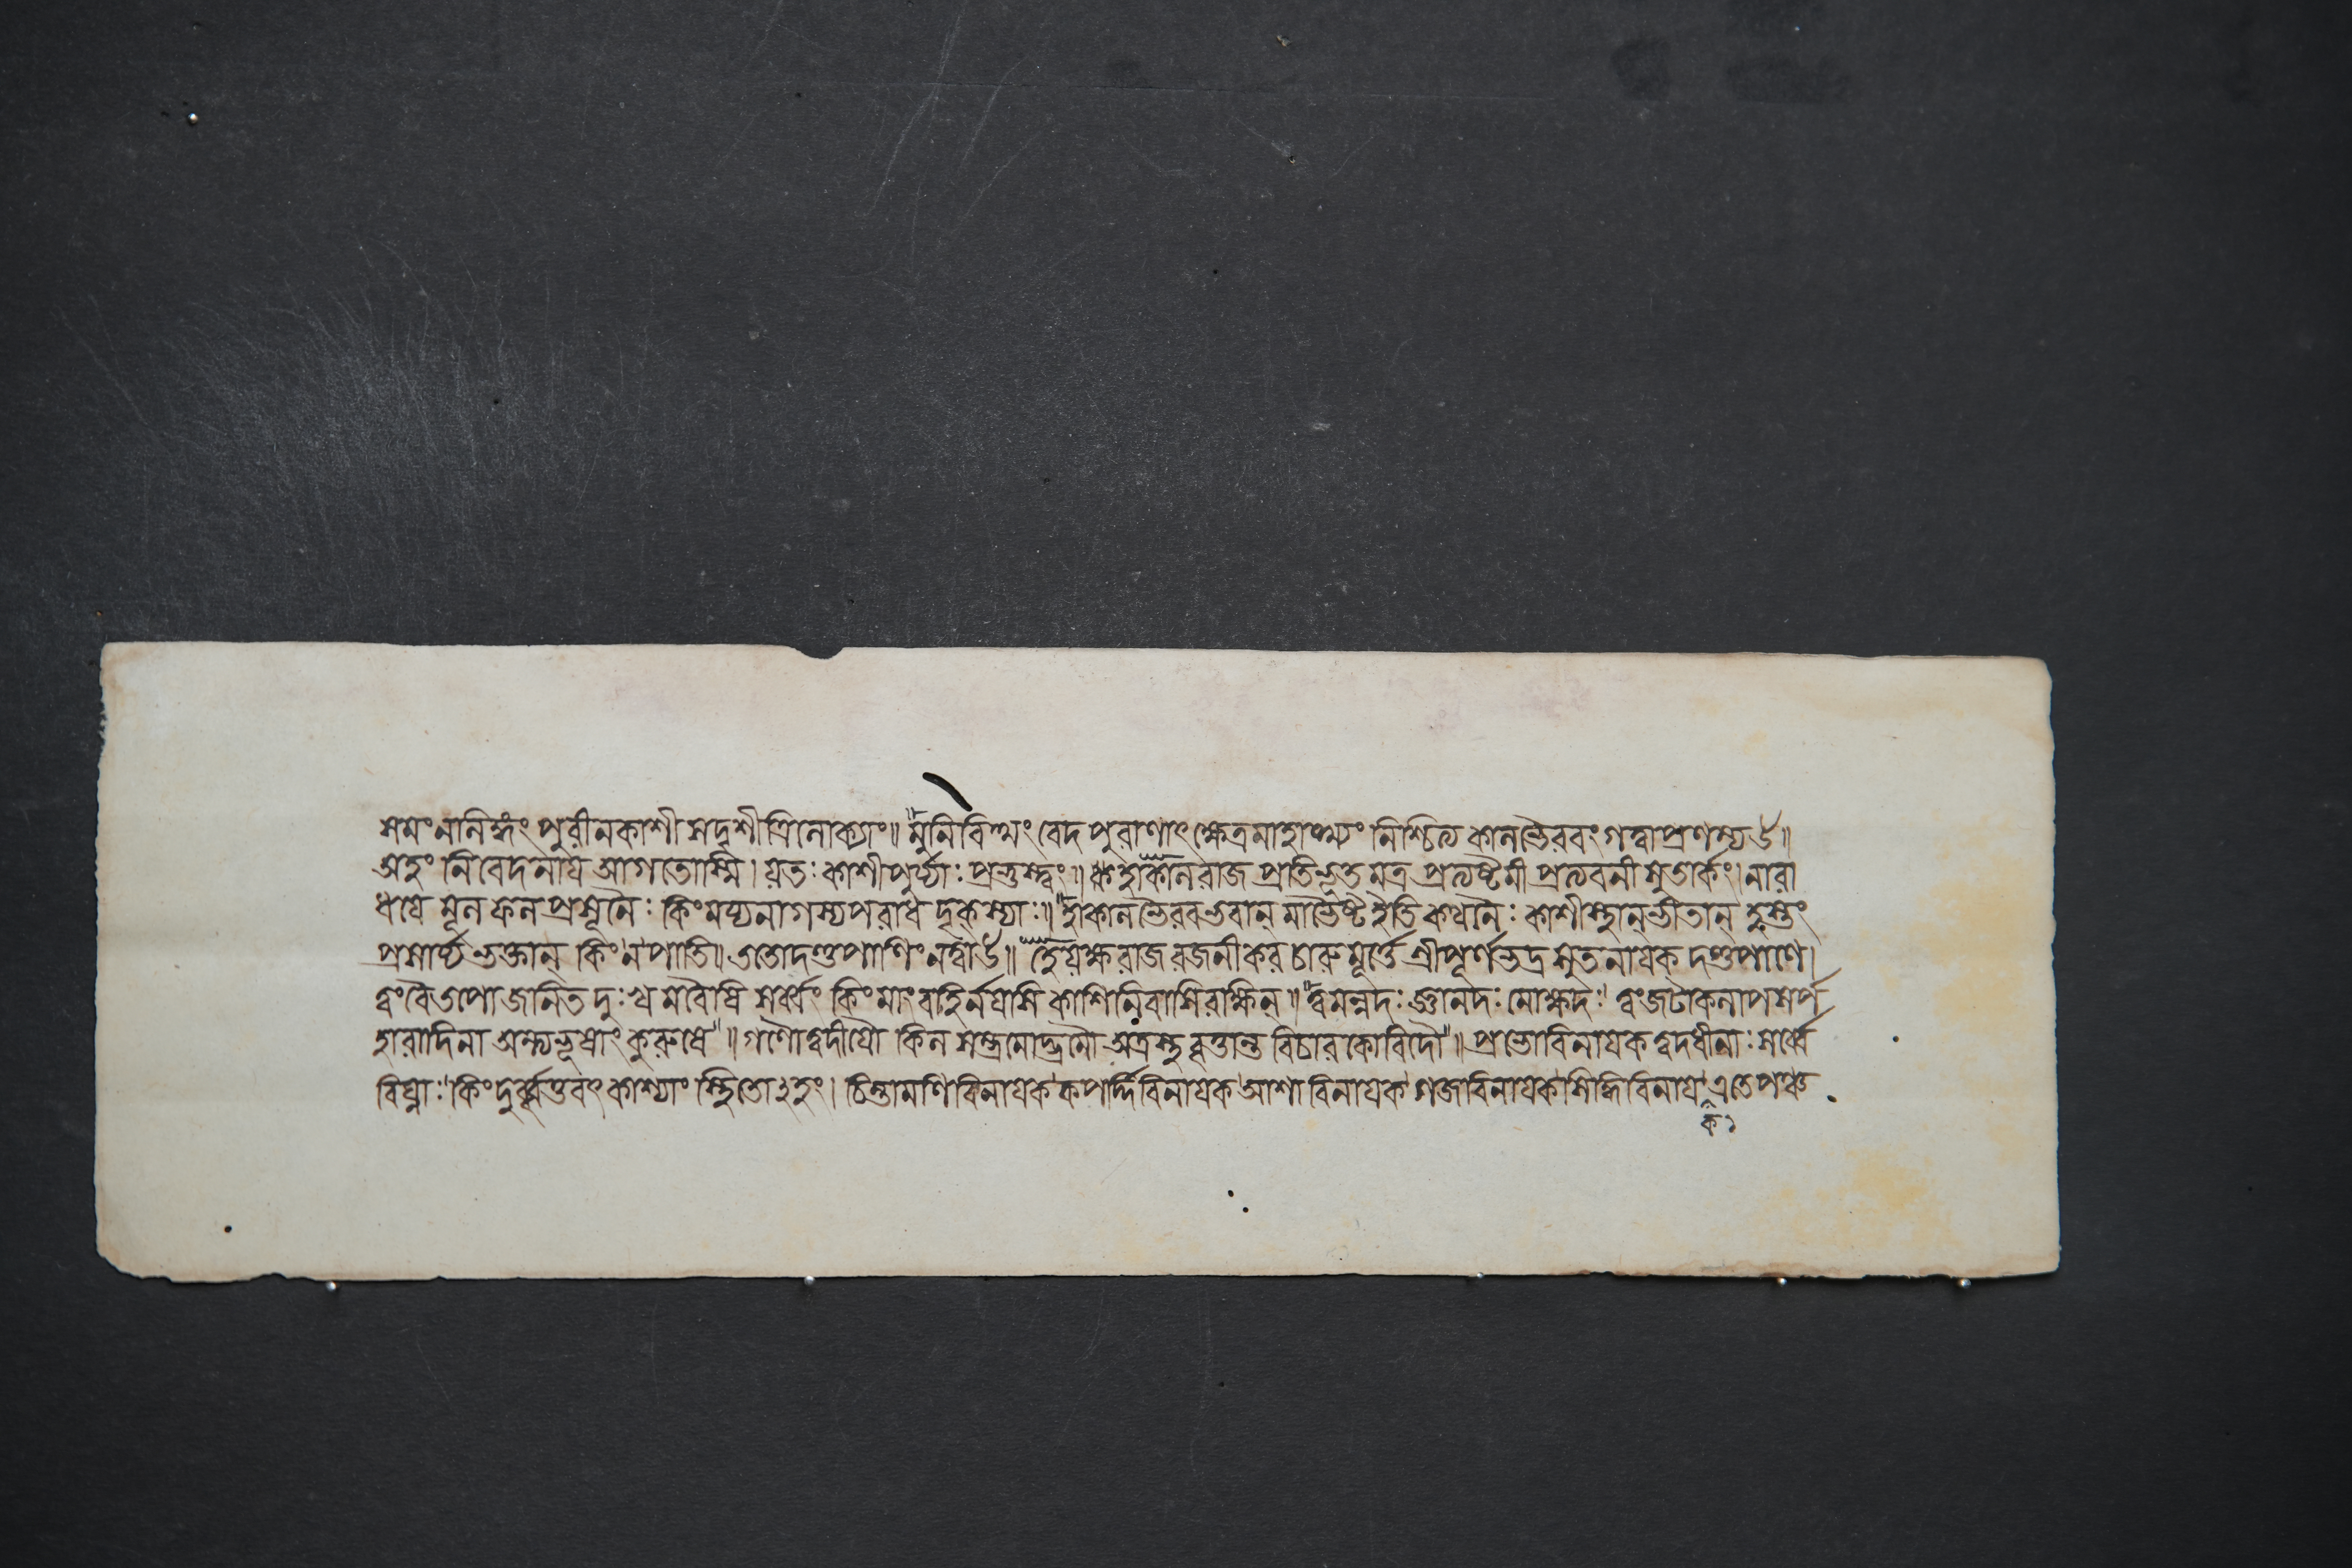 সমং নলিঙ্গং পুরী ন কাশী সদৃশী ত্রিলোক্যাং॥ মুনিবিত্থং বেদপুরাণাৎ ক্ষেত্রমাহাত্ম্যং নিশ্চিত্য কালভৈরবং গত্বা প্রণম্য
অহং নিবেদনায় আগতোস্মি। যতঃ কাশীপুর্য্যাঃ প্রভুস্ত্বং॥ হা কালরাজ প্রতিভূতমত্র প্রত্যষ্টমী প্রত্যবনীসুতার্কং। নারা
ধয়ে মূলফলপ্রসূনৈঃ কিং ময্যনাগস্যপরাধদৃক্ স্যাঃ॥ হা কালভৈরব ভবান্ মাভৈষ্ট ইতি কথনৈঃ কাশীস্থান্ ভীতান্
প্রসার্য্য ভক্তান্ কিং ন পাতি॥ ততো দণ্ডপাণিং নত্বা॥ হে যক্ষরাজ রজনীকর চারুমূর্ত্তে শ্রীপূর্ণভদ্রসুতনায়ক দণ্ডপাণে।
ত্বং বৈ তপোজনিত দুঃখমবৈষি সর্ব্বং কিং মাং বহির্নয়সি কাশিনিবাসিরক্ষিন্॥ ত্বমন্নদঃ জ্ঞানদঃ মোক্ষদঃ ত্বং জটাকলাপসর্প
হারাদিনা অন্ত্যভূষাং কুরুষে॥ গণৌ ত্বদীয়ৌ কিল সম্ভ্রমোদ্ভ্রমৌ অত্রস্থবৃত্তান্তবিচারকোবিদৌ॥ প্রভো বিনায়ক ত্বদধীনাঃ সর্ব্বে
বিঘ্নাঃ কিং দুর্ব্বৃত্তবৎ কাশ্যাং স্থিতোঽহং। চিন্তামণিবিনায়ক কপর্দ্দিবিনায়ক আশাবিনায়ক গজবিনায়ক সিদ্ধিবিনায় এতে পঞ্চ
ক